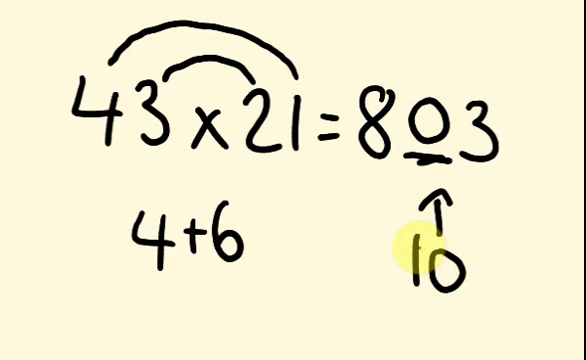 43 x 21 = 803
4+6
10